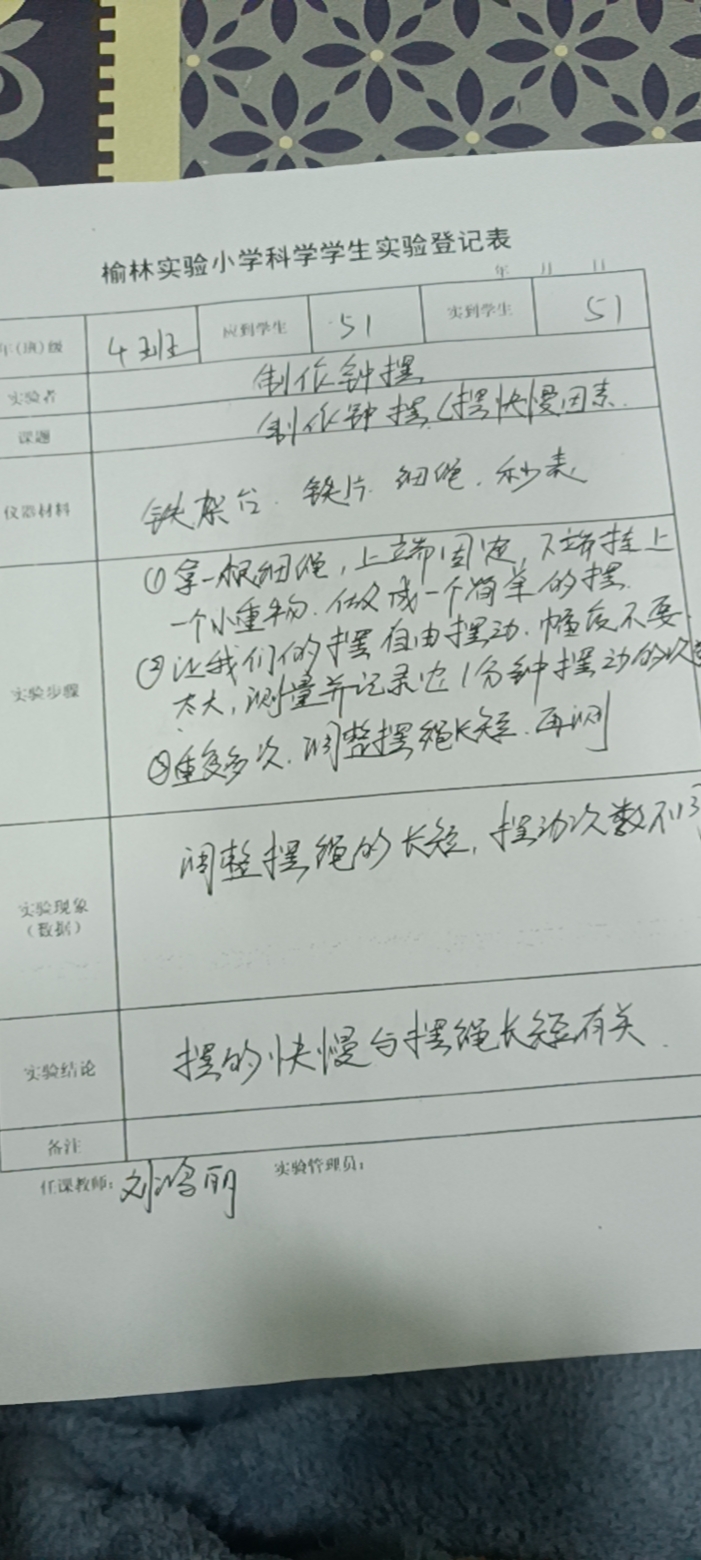 榆林实验小学科学学生实验登记表
年 月 日
年(班)级 4班 应到学生 51 实到学生 51
实验者 制作钟摆
课题 制作钟摆(摆快慢因素
仪器材料 铁架台 铁片 细绳 秒表
实验步骤
①拿一根细绳，上端固定，下端挂上
一个小重物，做成一个简单的摆．
②让我们的摆自由摆动．幅度不要
太大，测量并记录它1分钟摆动的次
③重复多次．调整摆绳长短．再测
实验现象
（数据）
调整摆绳的长短，摆动次数不同
实验结论 摆的快慢与摆绳长短有关．
备注
任课教师： 刘 丽 实验管理员：